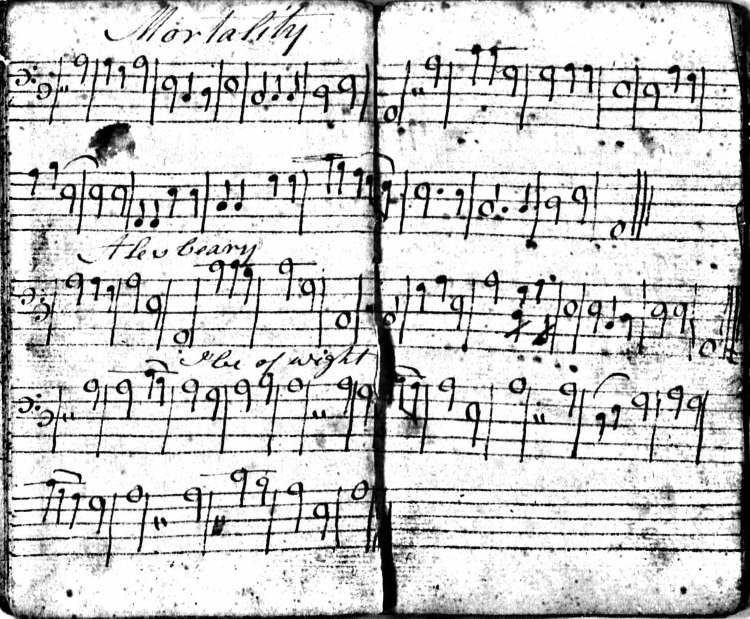 Mortality
Alesbeary
Isle of wight